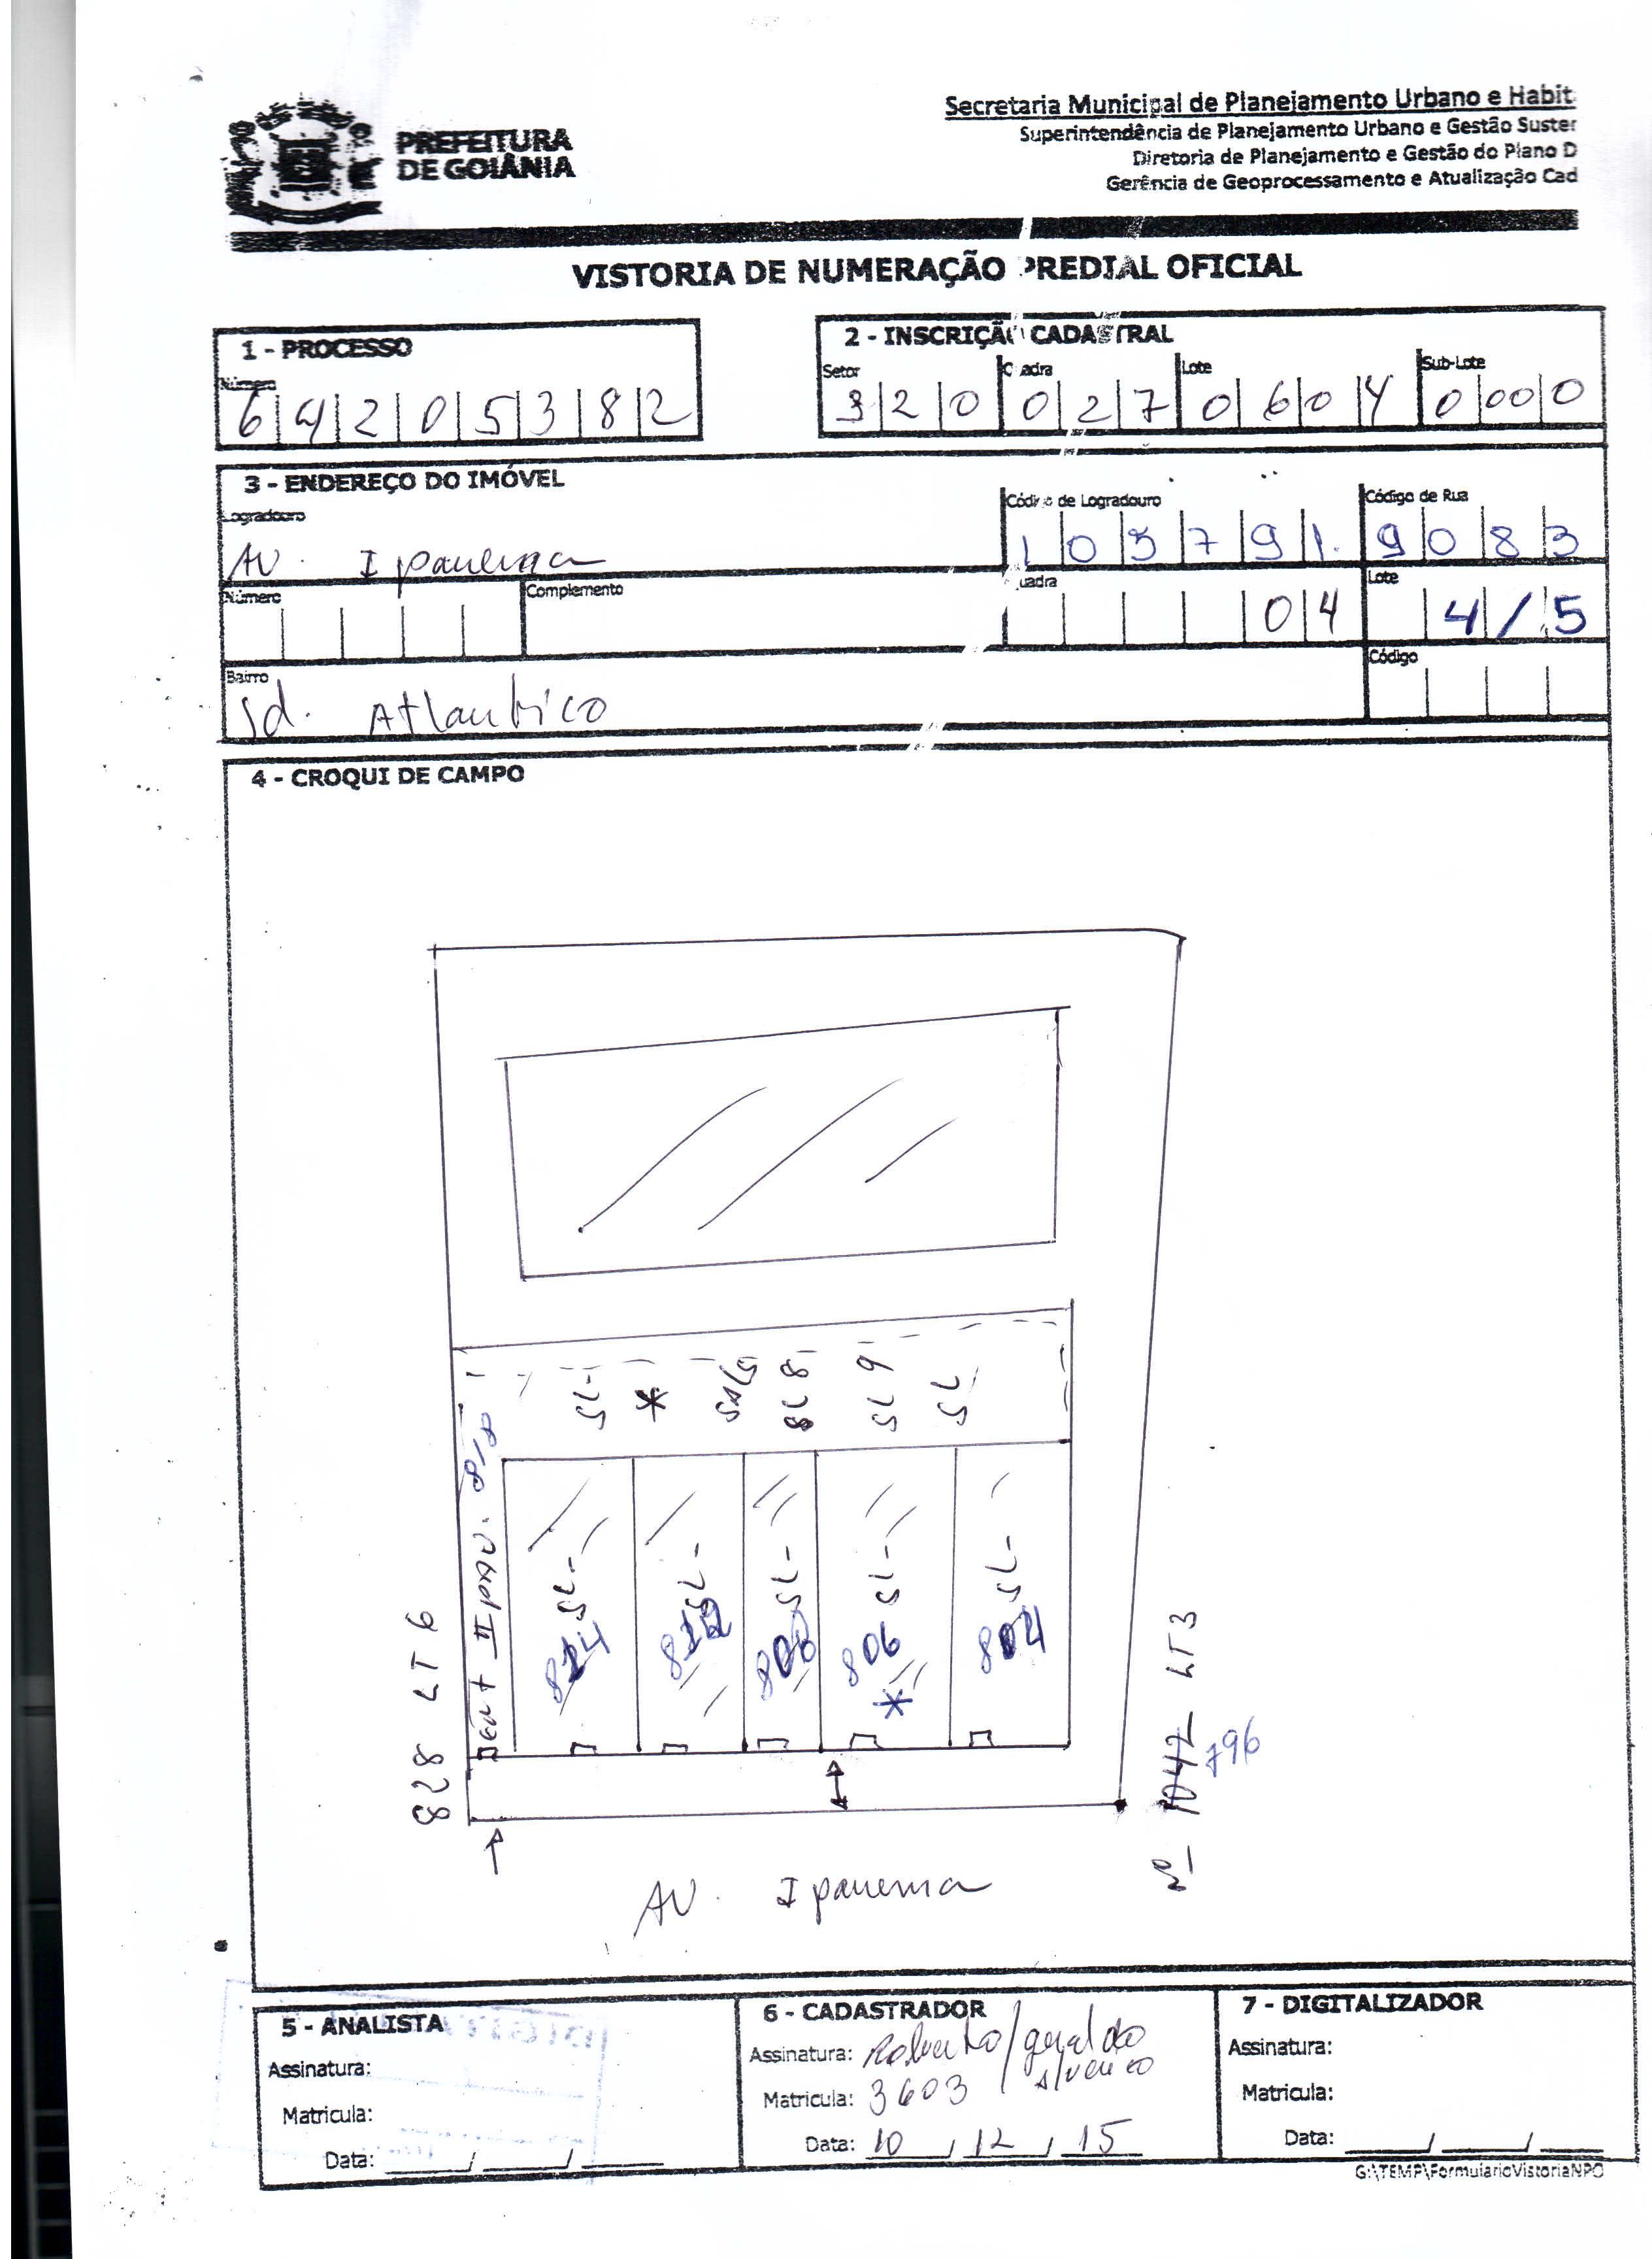 PREFEITURA
DE GOIÂNIA
Secretaria Municipal de Planejamento Urbano e Habit
Superintendência de Planejamento Urbano e Gestão Suster
Diretoria de Planejamento e Gestão do Plano D
Gerência de Geoprocessamento e Atualização Cad
VISTORIA DE NUMERAÇÃO PREDIAL OFICIAL
1 - PROCESSO
Número
6 4 2 0 5 3 8 2
2 - INSCRIÇÃO CADASTRAL
Setor Quadra Lote Sub-Lote
3 2 0 0 2 7 0 6 0 4 0 0 0 0
3 - ENDEREÇO DO IMÓVEL
Logradouro
AV. Ipanema
Código de Logradouro
1 0 5 7 9 1.
Código de Rua
9 0 8 3
Número
Complemento
Quadra
0 4
Lote
4 / 5
Bairro
Jd. Atlantico
Código
4 - CROQUI DE CAMPO
SL-
*
SL 8
SL 9
SL
II PAV.
SL- SL- SL- SL- SL-
806 804
*
828 LT 6
LT 3
1042 796
Nº
AV. Ipanema
5 - ANALISTA
Assinatura:
Matricula:
Data: / /
6 - CADASTRADOR
Assinatura: Roberto / geraldo
Matricula: 3603
Data: 10 / 12 / 15
7 - DIGITALIZADOR
Assinatura:
Matricula:
Data: / /
G:\TEMP\FormularioVistoriaNPO